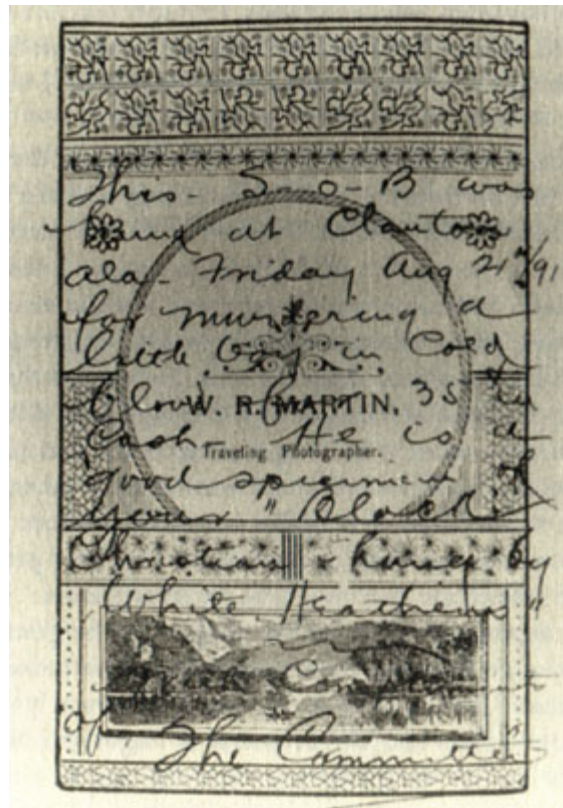 This- S-O-B was
hung at Clayton
ala- Friday Aug 21st/91
for murdering a
little boy in Cold
blood for 35¢ in
Cash He is a
good specimen of
your "Black
Christian hung by
White Heathens"
With Compliments
of The Committee
W. R. MARTIN.
Traveling Photographer.